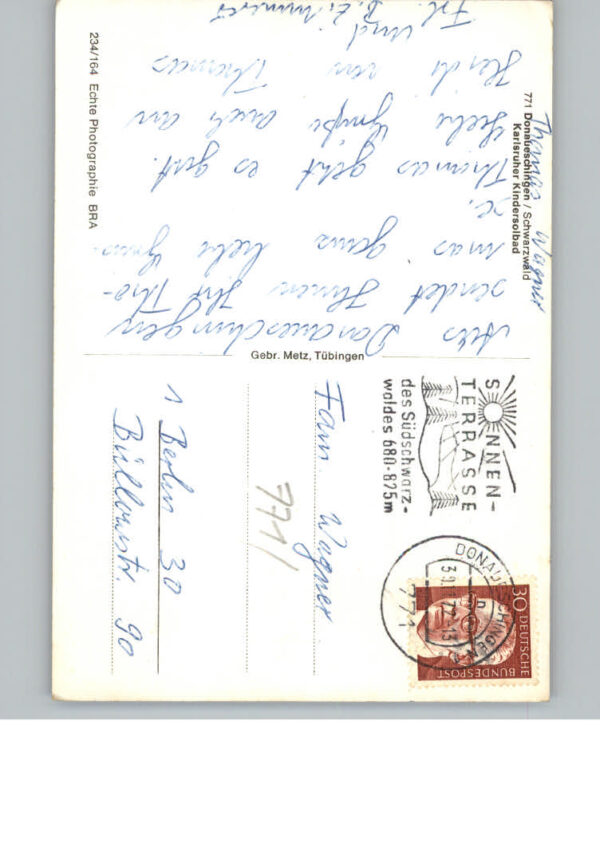 771 Donaueschingen / Schwarzwald
Karlsruher Kindersolbad
Thomas Wagner
Aus Donaueschingen
sendet Ihnen Ihr Tho-
mas ganz liebe Grüs-
se.
Thomas geht es gut.
Liebe Grüße auch an
Heidi von Thomas
und
Frl.
234/164 Echte Photographie BRA
Gebr. Metz, Tübingen
SONNEN-
TERRASSE
des Südschwarz-
waldes 680-825m
DONAUESCHINGEN
771
30 DEUTSCHE
BUNDESPOST
Fam. Wagner
771/
1 Berlin 30
Bülowstr. 90